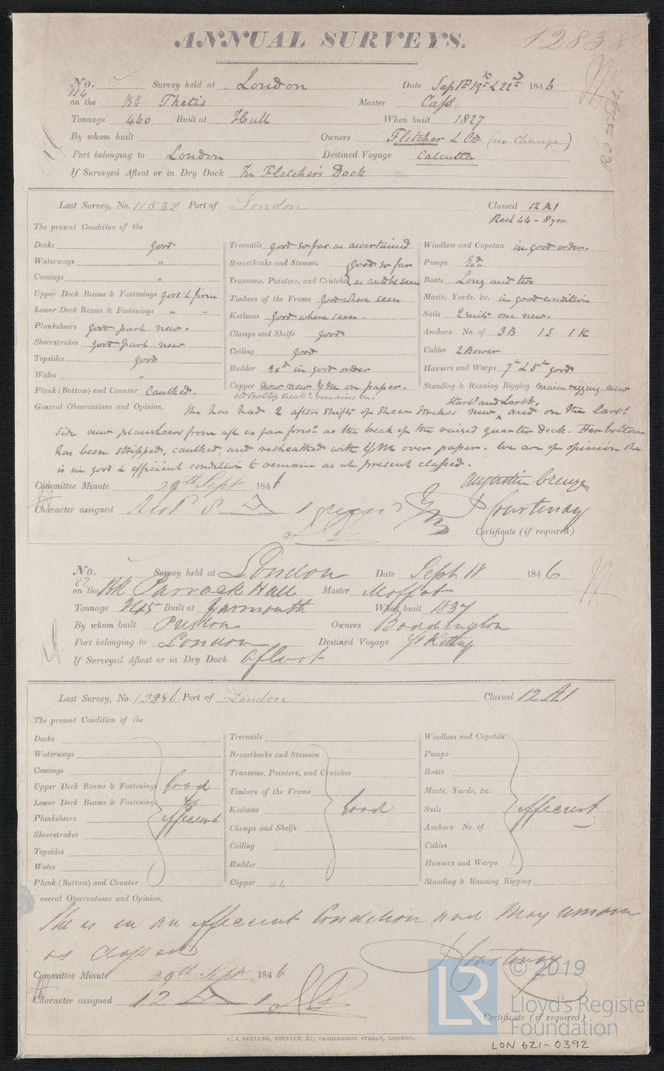 ANNUAL SURVEYS.
12838
No. Survey held at London Date Sept 1st 19th & 22nd 1846
on the Bk Thetis Master Cass
Tonnage 460 Built at Hull When built 1827
By whom built Owners Fletcher & Co (no change)
Port belonging to London Destined Voyage Calcutta
If Surveyed Afloat or in Dry Dock In Fletcher's Dock
Last Survey, No. 11532 Port of London Classed 12 A1
Rest 44 - 8 yrs.
The present Condition of the
Decks good
Waterways "
Comings "
Upper Deck Beams & Fastenings good & firm
Lower Deck Beams & Fastenings " "
Planksheers good part new.
Sheerstrakes good part new
Topsides good
Wales "
Plank (Bottom) and Counter Caulked.
Treenails good so far as ascertained
Breasthooks and Stemson good so far
Transoms, Pointers, and Crutches as could be seen
Timbers of the Frame Good where seen
Keelsons Good where seen.
Clamps and Shelfs good
Ceiling good
Rudder in good order
Copper now new Y.M on paper.
Windlass and Capstan in good order.
Pumps
Boats Long and two
Masts, Yards, &c. in good condition
Sails 2 suits one new.
Anchors No. of 3B 1S 1K
Cables 2 Bower
Hawsers and Warps good
Standing & Running Rigging main rigging new
General Observations and Opinion. She has had 2 after shifts of Sheer Strakes new, Starbd and Larbd, and on the Larbd
side new plansheers from aft as far forwd as the break of the raised quarter deck. Her bottom
has been stripped, caulked, and resheathed with Y/M over paper. We are of opinion she
is in good & efficient condition to remain as at present classed.
Augustin Creuze
Committee Minute 29th Sept 1846
Courtenay
Character assigned
Certificate (if required)
No. Survey held at London Date Sept 18 1846
on the Bk Parrock Hall Master Moffat
Tonnage Built at Yarmouth When built 1837
By whom built Preston Owners Boddington
Port belonging to London Destined Voyage St Kitts
If Surveyed Afloat or in Dry Dock Afloat
Last Survey, No. 12286 Port of London Classed 12 A1
The present Condition of the
Decks
Waterways
Comings
Upper Deck Beams & Fastenings Good
Lower Deck Beams & Fastenings &
Planksheers efficient
Sheerstrakes
Topsides
Wales
Plank (Bottom) and Counter
Treenails
Breasthooks and Stemson
Transoms, Pointers, and Crutches
Timbers of the Frame
Keelsons Good
Clamps and Shelfs
Ceiling
Rudder
Copper
Windlass and Capstan
Pumps
Boats
Masts, Yards, &c.
Sails efficient
Anchors No. of
Cables
Hawsers and Warps
Standing & Running Rigging
eneral Observations and Opinion,
She is in an efficient Condition and May remain
as Classed
Courtenay
Committee Minute 29th Sept 1846
Character assigned 12 A 1
Certificate (if required)
C. F. SEYFANG, PRINTER, 57, FARRINGDON STREET, LONDON.
LR © 2019
Lloyd's Register
Foundation
LON 621-0392